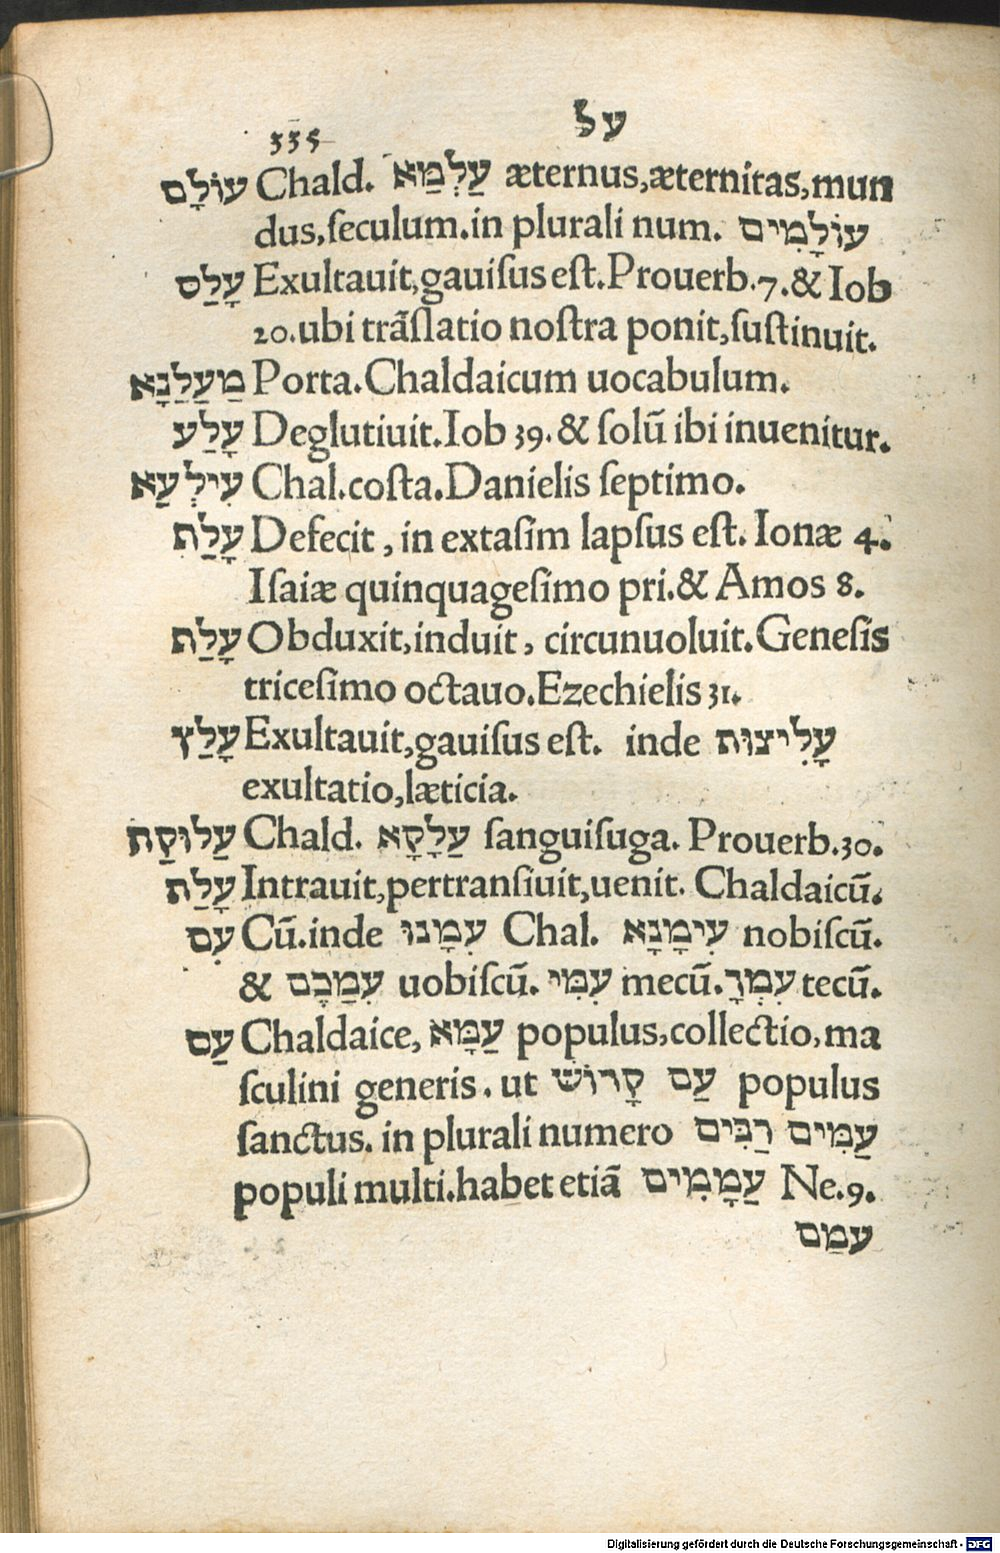 335 על
עוֹלָם Chald. עַלְמַא æternus,æternitas,mun
dus,ſeculum.in plurali num. עוֹלָמִים
עָלַס Exultauit,gauiſus eſt.Prouerb.7.& Iob
20.ubi trãſlatio noſtra ponit,ſuſtinuit.
מַעַלַנָא Porta.Chaldaicum uocabulum.
עָלַע Deglutiuit.Iob 39.& ſolũ ibi inuenitur.
עִילְעַא Chal.coſta.Danielis ſeptimo.
עָלַת Defecit, in extaſim lapſus eſt. Ionæ 4.
Iſaiæ quinquageſimo pri.& Amos 8.
עָלַת Obduxit,induit, circunuoluit.Geneſis
triceſimo octauo.Ezechielis 31.
עָלַץ Exultauit,gauiſus eſt. inde עָלִיצוּת
exultatio,læticia.
עַלוּקַת Chald. עַלָקָא ſanguiſuga. Prouerb.30.
עָלַת Intrauit,pertranſiuit,uenit. Chaldaicũ.
עִם Cũ.inde עִמָנוּ Chal. עִימָנָא nobiſcũ.
& עִמַכֶם uobiſcũ. עִמִּי mecũ. עִמְךָ tecũ.
עַם Chaldaice, עַמָּא populus,collectio,ma
ſculini generis. ut עַם קָדוֹשׁ populus
ſanctus. in plurali numero עַמִּים רַבִּים
populi multi.habet etiã עַמָמִים Ne.9.
עמַם
Digitalisierung gefördert durch die Deutsche Forschungsgemeinschaft - DFG